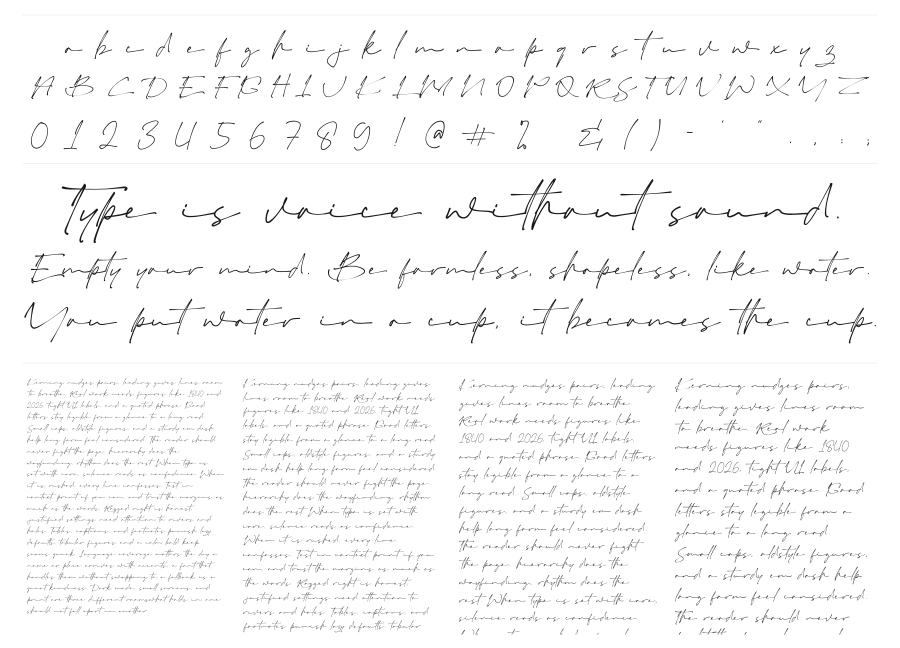 a b c d e f g h i j k l m n o p q r s t u v w x y z
A B C D E F G H I J K L M N O P Q R S T U V W X Y Z
0 1 2 3 4 5 6 7 8 9 ! @ # ? & ( ) - ' " . , : ;
Type is voice without sound.
Empty your mind. Be formless, shapeless, like water.
You put water in a cup, it becomes the cup.
Kerning nudges pairs, leading gives lines room
to breathe. Real work needs figures like 1840 and
2026, tight UI labels, and a quoted phrase. Good
letters stay legible from a glance to a long read.
Small caps, oldstyle figures, and a sturdy em dash
help long form feel considered. The reader should
never fight the page, hierarchy does the
wayfinding, rhythm does the rest. When type is
set with care, silence reads as confidence. When
it is rushed, every line confesses. Test in
context, print if you can, and trust the margins as
much as the words. Ragged right is honest,
justified settings need attention to rivers and
holes. Tables, captions, and footnotes punish lazy
defaults, tabular figures and a calm bold keep
sums quiet. Language coverage matters the day a
name or place arrives with accents, a font that
handles them without swapping to a fallback is a
quiet kindness. Dark mode, small screens, and
print are three different rooms, what holds in one
should not fall apart in another.
Kerning nudges pairs, leading gives
lines room to breathe. Real work needs
figures like 1840 and 2026, tight UI
labels, and a quoted phrase. Good letters
stay legible from a glance to a long read.
Small caps, oldstyle figures, and a sturdy
em dash help long form feel considered.
The reader should never fight the page,
hierarchy does the wayfinding, rhythm
does the rest. When type is set with
care, silence reads as confidence.
When it is rushed, every line
confesses. Test in context, print if you
can, and trust the margins as much as
the words. Ragged right is honest,
justified settings need attention to
rivers and holes. Tables, captions, and
footnotes punish lazy defaults, tabular
Kerning nudges pairs, leading
gives lines room to breathe.
Real work needs figures like
1840 and 2026, tight UI labels,
and a quoted phrase. Good letters
stay legible from a glance to a
long read. Small caps, oldstyle
figures, and a sturdy em dash
help long form feel considered.
The reader should never fight
the page, hierarchy does the
wayfinding, rhythm does the
rest. When type is set with care,
silence reads as confidence.
Kerning nudges pairs,
leading gives lines room
to breathe. Real work
needs figures like 1840
and 2026, tight UI labels,
and a quoted phrase. Good
letters stay legible from a
glance to a long read.
Small caps, oldstyle figures,
and a sturdy em dash help
long form feel considered.
The reader should never